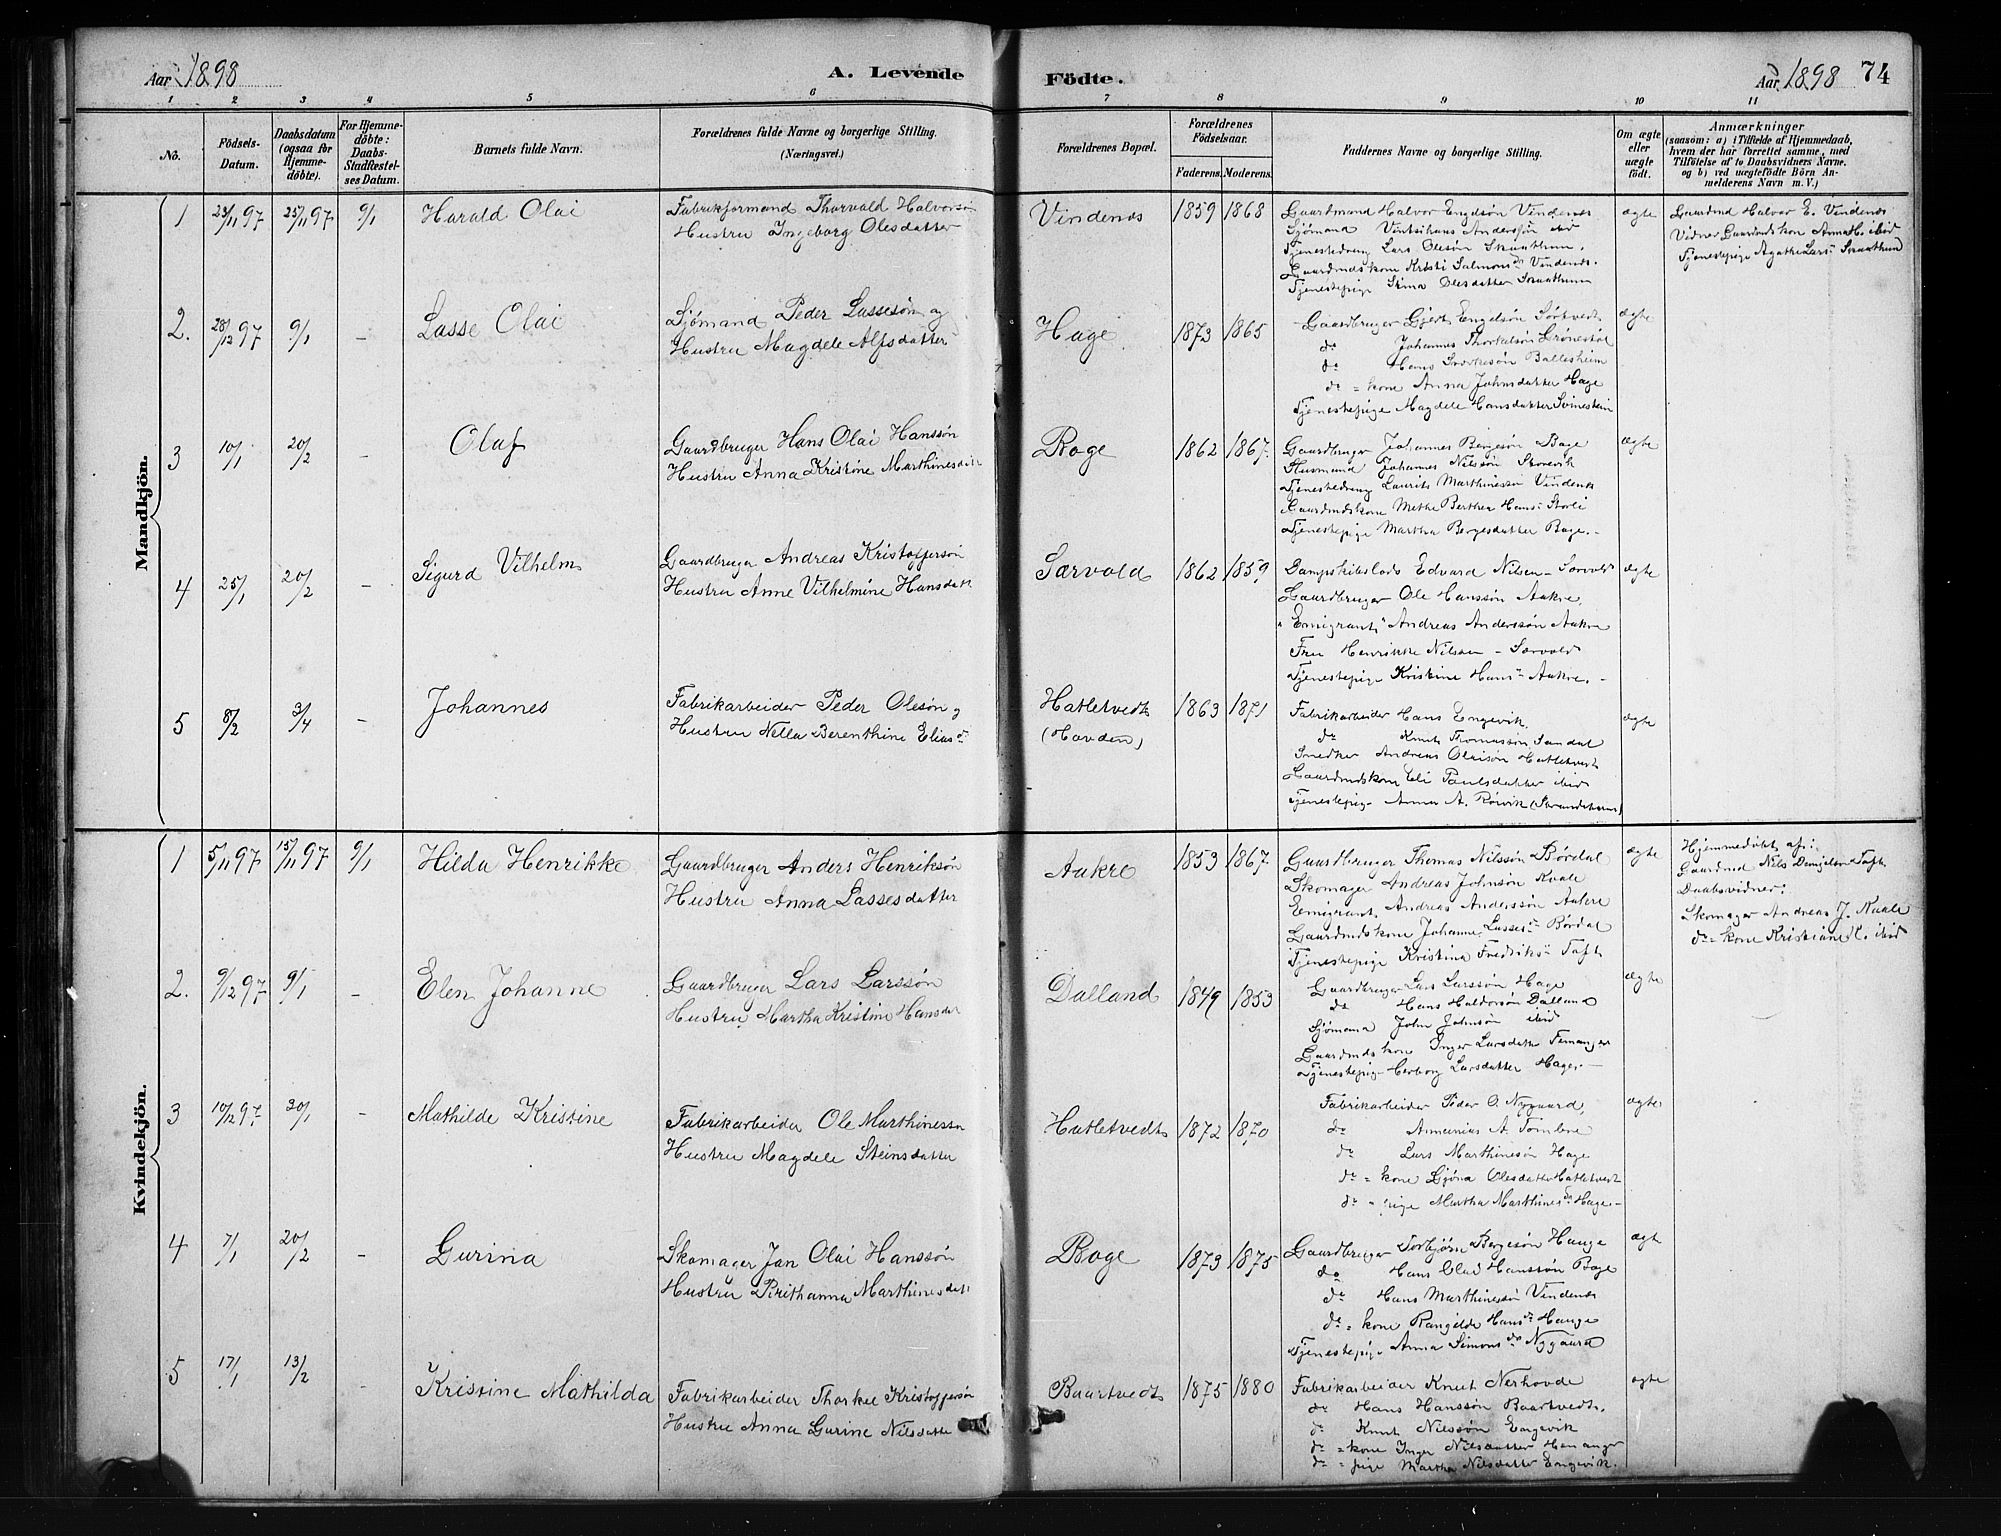 Aar 1898
A. Levende
Födte.
Aar 1898
74
1 2 3 4 5 6 7 8 9 10 11
No.
Födsels-
Datum.
Daabsdatum
(ogsaa for
Hjemme-
döbte).
For Hjemme-
döbte:
Daabs-
Stadfæstel-
ses Datum.
Barnets fulde Navn.
Forældrenes fulde Navne og borgerlige Stilling.
(Næringsvei.)
Forældrenes Bopæl.
Forældrenes
Födselsaar.
Faderens. Moderens.
Faddernes Navne og borgerlige Stilling.
Om ægte
eller
uægte
födt.
Anmærkninger
(saasom: a) i Tilfælde af Hjemmedaab,
hvem der har forrettet samme, med
Tilföielse af to Daabsvidners Navne.
og b) ved uægtefödte Börn An-
melderens Navn m. V.)
Mandkjön.
1 23/11 97 25/11 97 9/1 Harald Olai
Fabrikformand Thorvald Halvorsön
Hustru Ingeborg Olesdatter
Vindenes 1859 1868
Gaardmand Halvor Engelsön Vindenes
Sjömand Andersön ibid
Tjenestedreng Lars Olesön Skaathun.
Gaardmdskone Kristi Salmonsdr Vindenes.
Tjenestepige Stina Olesdatter Skaathun
ægte
Gaardmd Halvor E. Vindenes
Vidner Gaardmdskone Anna H. ibid
Tjenestepige Agathe Lars- Skaathun
2. 28/12 97 9/1 - Lasse Olai
Sjömand Peder Lassesön og
Hustru Magdele Alfsdatter
Hage 1873 1865
Gaardbruger Gjert Engelsön Sörtvedt
do Johannes Thorkelsön Grönestöl
do Hans Ballesheim
do = kone Anna Johnsdatter Hage
Tjenestepige Magdele Hansdatter
ægte
3 10/1 20/2 - Olaf
Gaardbruger Hans Olai Hanssön
Hustru Anna Kristine Marthinesdatt
Boge 1862 1867
Gaardbruger Johannes Börgesön Boge
Husmand Johannes Nilssön Storevik
Tjenestedreng Laurits Marthinessön Vindenes
Gaardmdskone Methe Berthea Hans- Storli
Tjenestepige Martha Börgesdatter Boge.-
ægte
4 25/1 20/2 - Sigurd Vilhelm
Gaardbruger Andreas Kristoffersön
Hustru Anne Vilhelmine Hansdatt
Særvold 1862 1859
Dampskibslods Edvard Nilsen - Særvold
Gaardbruger Ole Hanssön Aakre,
"Emigrant" Andreas Anderssön Aakre
Fru Henrikke Nilsen - Særvold
Tjenestepige Kristine Hans- Aakre.-
ægte
5 8/2 3/4 - Johannes
Fabrikarbeider Peder Olesön og
Hustru Nella Berenthine Elias-
Hatletvedt
(Hovden)
1863 1871
Fabrikarbeider Hans Engevik.
do Knut Thomassön Sandal
Snedker Andreas Olaisön Hatletvedt
Gaardmdskone Eli Paulsdatter ibid
Tjenestepig- Anna A. Röivik
ægte
Kvindekjön.
1 5/11 97 15/11 97 9/1 Hilda Henrikke
Gaardbruger Anders Henriksön
Hustru Anna Lassesdatter
Aakre 1853 1867
Gaardbruger Thomas Nilssön Bördal
Skomager Andreas Johnsön Kvale
Emigrant. Andreas Anderssön Aakre
Gaardmdskone Johanne Lasses- Bördal
Tjenestepige Kristina Fredriks- Toft
ægte
Hjemmedöbt af:
Gaardmd Nils Danielsen Toft.
Daabsvidner:
Skomager Andreas J. Kvale
do = kone Kristiane ibid
2. 9/12 97 9/1 - Elen Johanne
Gaardbruger Lars Larssön
Hustru Martha Kristine Hansdat
Dalland 1849 1853
Gaardbruger Lars Larssön Hage
do Hans Haldorsön Dalland
Sjömand John Johnsön ibid
Gaardmdskone Inger Larsdatte Femanger
Tjenestepig- Herborg Larsdatter Hage.-
ægte
3 10/12 97. 30/1 - Mathilde Kristine
Fabrikarbeider Ole Marthinessn
Hustru Magdele Steinsdatter
Hatletvedt 1872 1870
Fabrikarbeider Peder O. Nygaard,
do Ananias A. Tombre
do Lars Marthinesön Hage
do = kone Gjöna Olesdatter Hatletvedt
do = pige Martha Marthinesdr Hage-
ægte
4 7/1 20/2 - Gurina
Skomager Jan Olai Hanssön
Hustru Birithanna Marthinesdatt
Boge 1873 1875
Gaardbruger Torbjörn Börgesön Hauge
do Hans Olai Hanssön Boge
do Hans Marthinessön Vindenes
do = kone Rangilde Hansdr Hauge
Tjenestepige Anna Simonsdr Nygaard
ægte
5 17/1 13/2 - Kristine Mathilda
Fabrikarbeider Thorkel Kristoffersön
Hustru Anna Gurine Nilsdatte
Baartvedt 1875 1880
Fabrikarbeider Knut Nerhovde
do Hans Hanssön Baartvedt.
do Knut Nilssön Engevik
do = kone Inger Nilsdatter
do = pige Martha Nilsdatter Engevik.
ægte